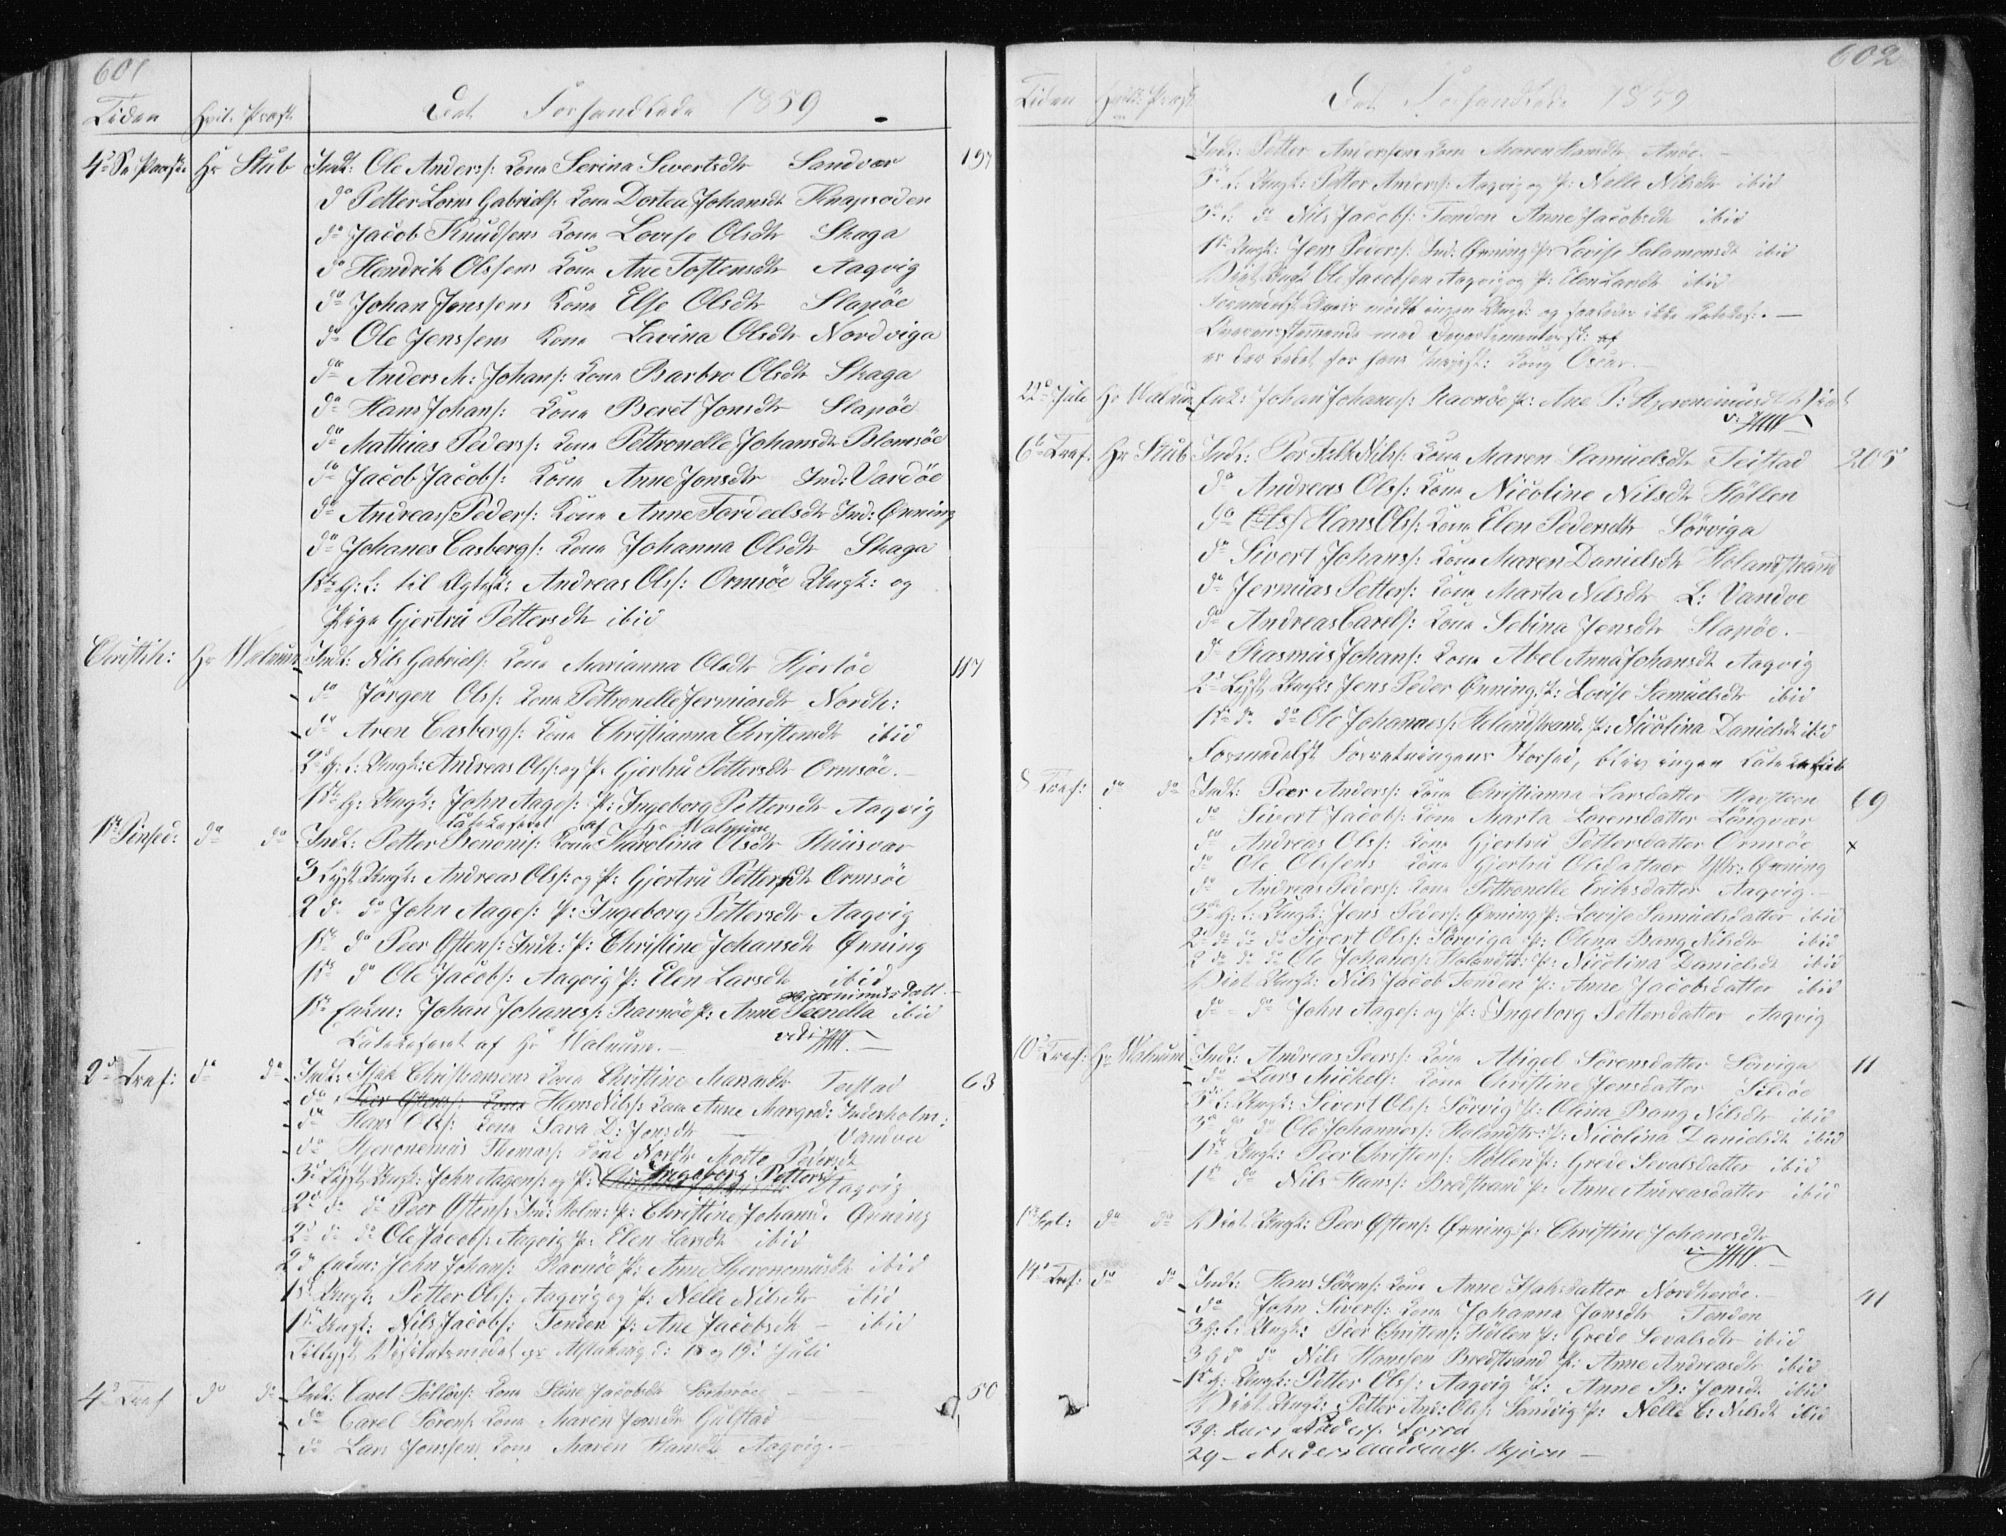 601
Tiden Hvilk Præst. Det Forhandlede 1859
4de Sø Paaske. Hr Stub Indt: Ole Anderss: Kone Serina Sivertsdtr Sandvær 157
do Petter Lorns Gabriels: Kone Dortea Johansdtr Knapsoden
do Jacob Knudsens Kone Lovise Olsdtr Skaga
do Hendrik Olssens Kone Ane Tostensdtr Aagvig
do Johan Jonssens Kone Else Olsdtr Slapöe
do Ole Jenssens Kone Lavina Olsdtr Nordviga
do Anders M: Johans: Kone Barbro Olsdtr Skaga
do Hans Johans: Kone Beret Jonsdtr Slapöe
do Mathias Peders: Kone Petronelle Johansdtr Blomsöe
do Jacob Jacobs: Kone Anne Jonsdtr Ind: Vardöe
do Andreas Peders: Kone Anne Tordedsdtr Ind: Ønning
do Johanes Casbergs: Kone Johanna Olsdtr Skaga
1ste G: L: til Ægtsk: Andreas Ols: Ormsöe Ungk: og
Pige Gjertru Pettersdtr ibid
Christih: Hr Walnum Indt: Nils Gabriels: Kone Marianna Olsdtr Hjertöe 117
do Jörgen Ols: Kone Petronelle Jermiasdtr Nordh:
do Aren Casbergs: Kone Christianna Christensdtr ibid
2d G: L: Ungk: Andreas Ols: og P: Gjertru Pettersdtr Ormsöe.
1ste G: Ungk: John Aages: P: Ingeborg Pettersdtr Aagvig
Catekeseret af Hr Walnum
1ste Pinsed: do do Indt: Petter Benonis: Kone Karolina Olsdtr Huusvær
3 Lyst Ungk: Andreas Ols: og P: Gjertru Pettersdtr Ormsöe
2 do do John Aages: P: Ingeborg Pettersdtr Aagvig
1ste do Peer Ostens: Indh: P: Christine Johansdtr Ønning
1ste do Ole Jacobs: Aagvig P: Elen Larsdtr ibid
Hieronimus Datt.
1ste Enkm: Johan Johanes: Ravnöe P: Anne Peendta ibid
Catekeseret af Hr Walnum.
2d Tref: do do Indt: Isak Christiansens Kone Christine Mariadtr Teistad 63
do Peer Ostens: Kone Hans Nils: Kone Anne Margred: Inderholm:
do Hans Ols: Kone Sara D: Jonsdtr Vandve
do Hjeronemus Thomas: Kone Nordtr Motte Pedersdtr
3d Lyst Ungk: John Aagens: og P: Ingeborg Petters Aagvig
2d do do Peer Ostens: Ind: Holm: P: Christine Johansd. Ønning
2d do do Ole Jacobs: Aagvig P: Elen Larsdtr ibid
2d Enkm: John Johans: Ravnöe P: Anne Hjeronemusdtr ibid
1ste Ungk: Petter Ols: Aagvig og P: Nelle Nilsdtr ibid
1ste Ungk: Nils Jacobs: Tenden P: Ane Jacobsdtr ibid
18 og 19: Juli
4d Tref do do Indt: Carel Kone Stine Jacobsdtr 50
do Carel Sörens: Kone Maren Jensdtr Gulstad
do Lars Jonssens Kone Maren Hansdtr Aagvig.
602
Tiden Hvilk: Præst Det Forhandlede 1859
Indt: Petter Anderssens Kone Maren Hansdtr
3de L: Ungk: Petter Anders: Aagvig og P: Nelle Nilsdtr ibid
3de L: do Nils Jacobs: Tenden Anne Jacobsdtr ibid
1ste Ungk: Jens Peders: Ind: Ønning P: Lovise Salamonsdtr ibid
Viet Ungk: Ole Jacobsen Aagvig og P: Elen Larsdtr ibid
mödte ingen Ungd: og saaledes ikke Catekes:
Overensstemmende med Departementets
er der bedet for hans Majest: Kong Oscar.
22de Juli Hr Walnum Enk: Johan Johanes: Ravnöe P: Ane P: Hjeronemusdtr Viet
6te Tref. Hr Stub Indt: Per Falk Nils: Kone Maren Samuelsdtr Teistad 205
do Andreas Ols: Kone Nicoline Nilsdtr Höllen
do Hans Ols: Kone Elen Pedersdtr Sörviga
do Sivert Johans: Kone Maren Danielsdtr Holandstrand
do Jermias Petters: Kone Marta Nilsdtr L: Vandve
do Andreas Carels: Kone Sebina Jensdtr Slapöe.
do Rasmus Johans: Kone Abel Anna Johansdtr Aagvig
2d Lyst Ungk: Jens Peder Ønning P: Lovise Samuelsdtr ibid
1ste do do Ole Johannes: Holandstrand P: Nicolina Danielsdtr ibid
Formedelst Forretningens Storhed, blev ingen Catekeseret
8 Tref: do do Indt: Peer Anders: Kone Christianna Larsdatter Havsteen 69
do Sivert Jacobs: Kone Marta Lorensdatter Löngvær
do Andreas Ols: Kone Gjertru Pettersdatter Ormsöe x
do Ole Olssens Kone Gjertru Olsdatter Ønning
do Andreas Peders: Kone Petronelle Eriksdatter Aagvig.
3de G: L: Ungk: Jens Peders: Ønning P: Lovise Samuelsdatter ibid
2d do do Sivert Ols: Sörviga P: Olina Bang Nilsdtr ibid
2 do do do Ole Johanes: Holandstr: P: Nicolina Danielsdtr ibid
Viet Ungk: Nils Jacob Tenden P: Anne Jacobsdatter ibid
do do John Aages: og P: Ingeborg Pettersdatter Aagvig
10de Tref: Hr Walnum Indt: Andreas Peers: Kone Abigel Sörensdatter Sörviga 11
do Lars Mickels: Kone Christine Jensdatter
3de L: Ungk: Sivert Ols: Sörvig P: Olina Bang Nilsdtr ibid
3de do do Ole Johannes: Holandstr: P: Nicolina Danielsdtr ibid
1ste Ungk: Peer Christens: Höllen P: Grede Sevalsdatter ibid
1ste do Nils Hans: Bredstrand P: Anne Andreasdatter ibid
1ste Sept: do do Viet Ungk: Peer Ostens: Ønning P: Christine Johanesdtr
14de Tref: do do Indt: Hans Sörens: Kone Anne Isaksdatter Nordherøe. 41
do John Siverts: Kone Johanna Jonsdtr Tenden
3 G: L: Ungk: Peer Christens: Höllen P: Grede Sevalsdtr ibid
3 G do do Nils Hanssen Bredstrand P: Anne Andreasdtr ibid
1ste G: Ungk: Petter Ols: Aagvig P: Anne B: Jonsdtr ibid
Viet Ungk: Petter And: Ols: Sandvig P: Nelle C: Nilsdtr ibid
3g.
2g